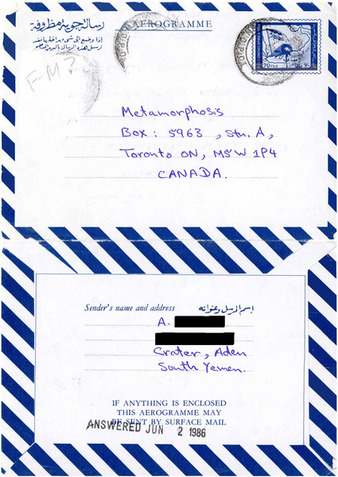 رسالة جوية مظروفة
AEROGRAMME
F M ?
Metamorphosis
Box: 5963, Stn. A,
Toronto ON, M5W 1P4
CANADA.
Sender's name and address
إسم المرسل وعنوانه
A.
Crater, Aden
South Yemen.
IF ANYTHING IS ENCLOSED
THIS AEROGRAMME MAY
BE SENT BY SURFACE MAIL
ANSWERED JUN 2 1986